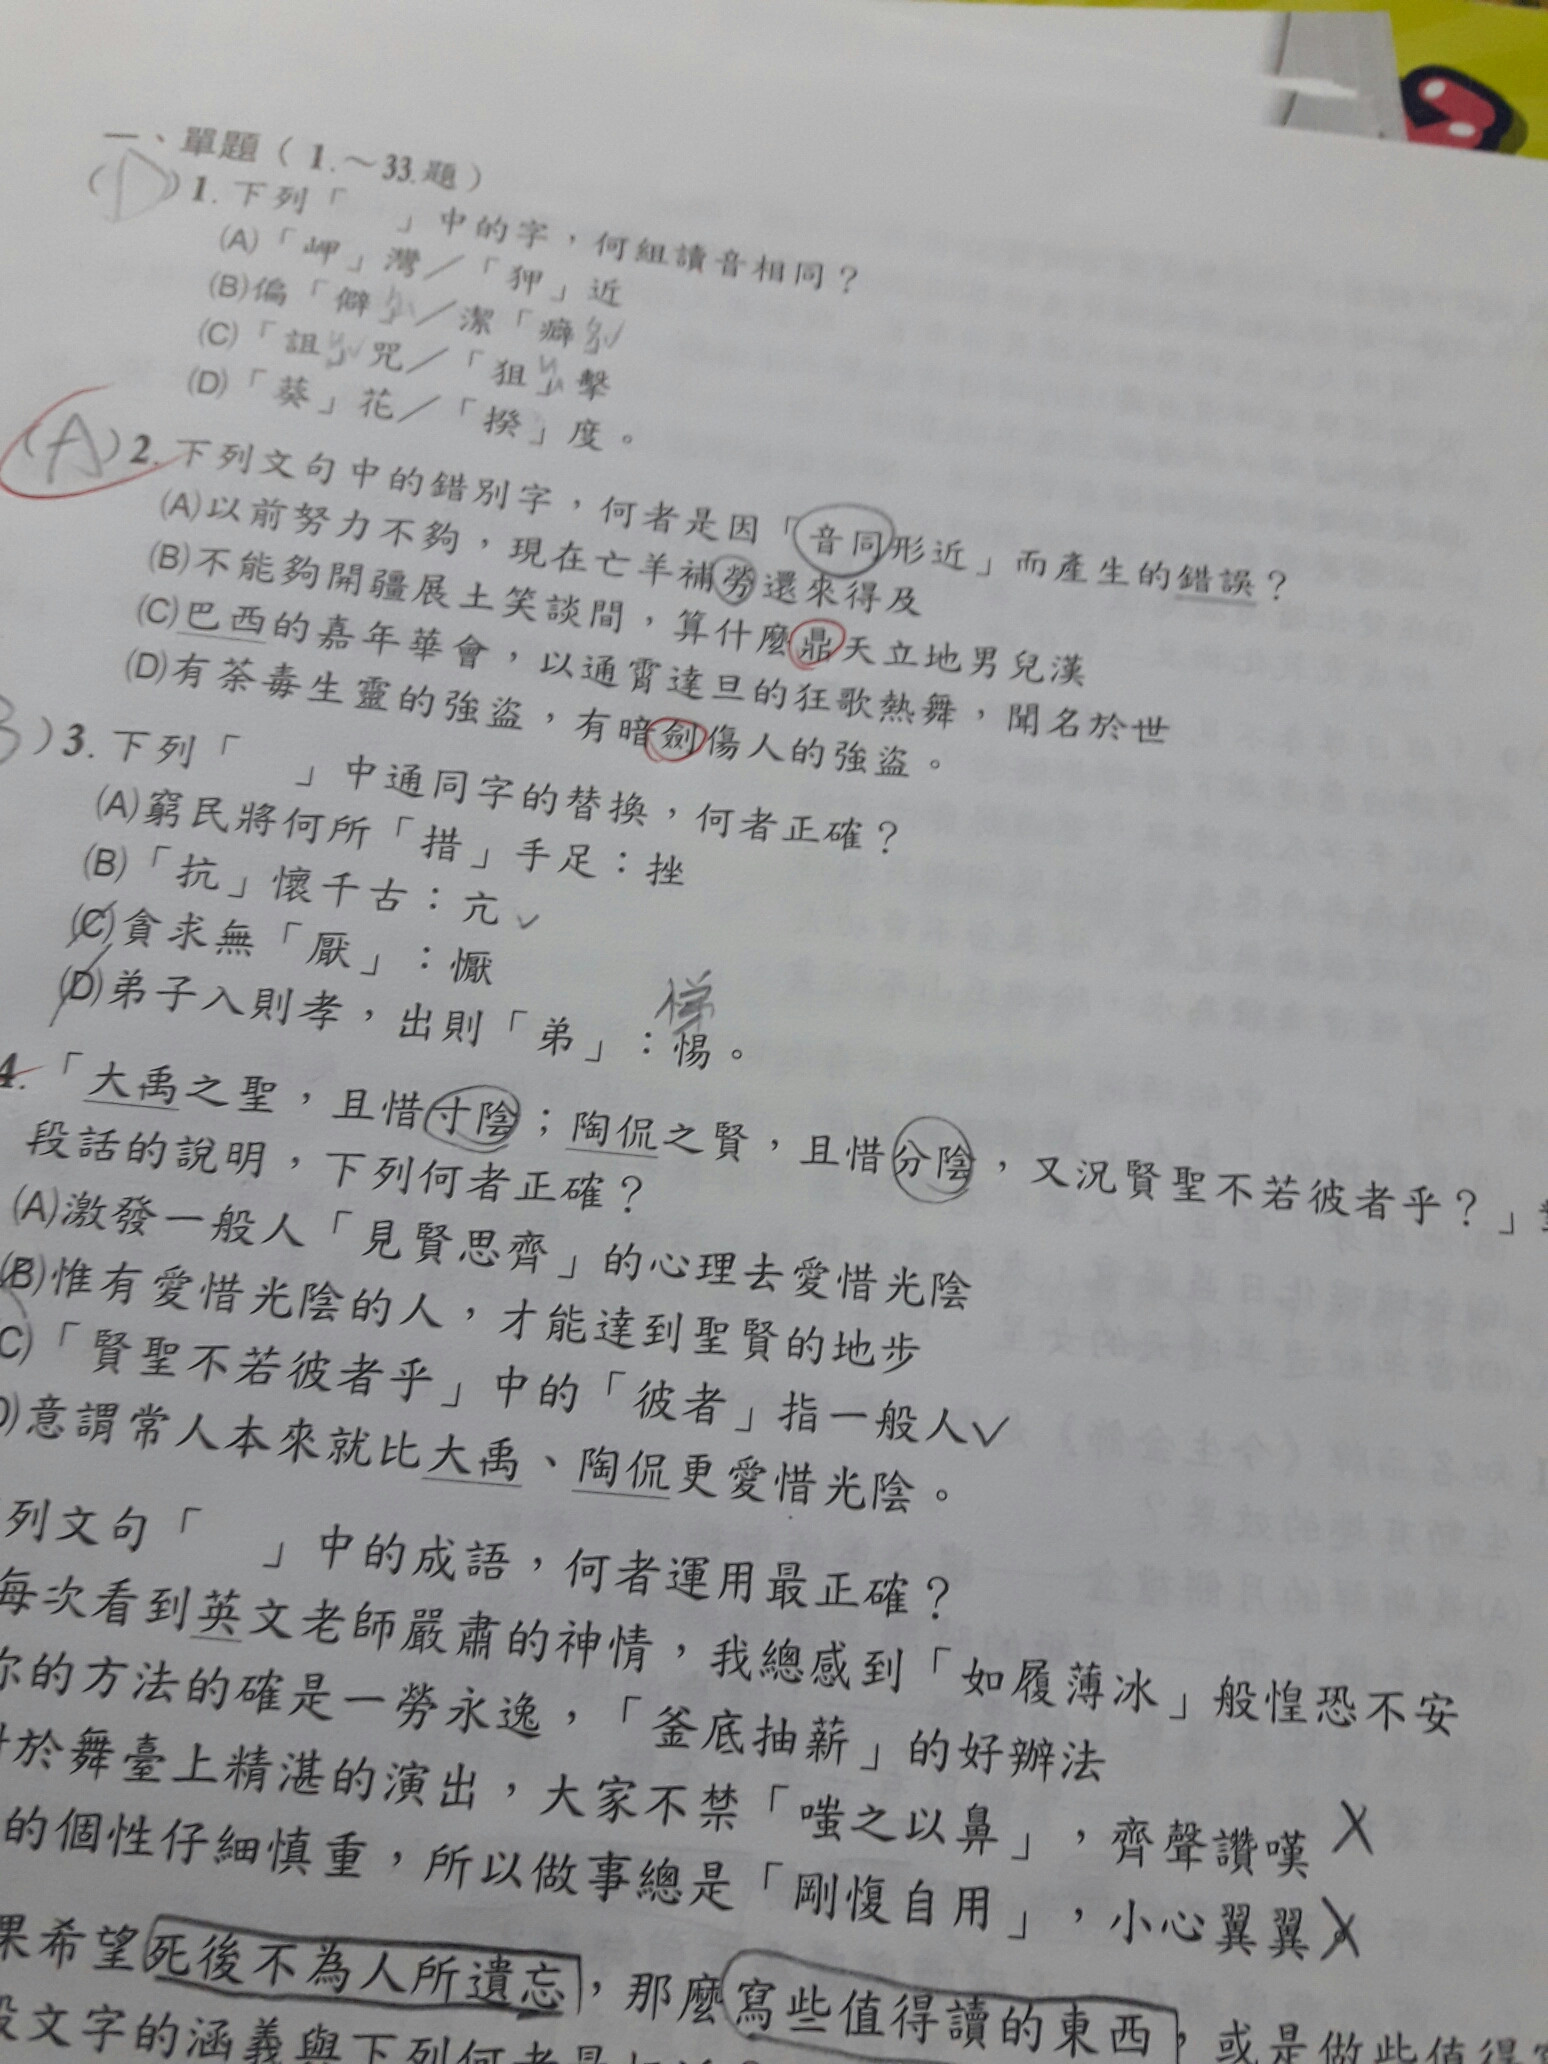 一、單題(1.~33.題)
(D)1.下列「 」中的字，何組讀音相同？
(A)「岬」灣／「狎」近
(B)偏「僻」／潔「癖」
(C)「詛」咒／「狙」擊
(D)「葵」花／「揆」度。
(A)2.下列文句中的錯別字，何者是因「音同形近」而產生的錯誤？
(A)以前努力不夠，現在亡羊補勞還來得及
(B)不能夠開疆展土笑談間，算什麼鼎天立地男兒漢
(C)巴西的嘉年華會，以通霄達旦的狂歌熱舞，聞名於世
(D)有荼毒生靈的強盜，有暗劍傷人的強盜。
)3.下列「 」中通同字的替換，何者正確？
(A)窮民將何所「措」手足：挫
(B)「抗」懷千古：亢
(C)貪求無「厭」：懨
悌
(D)弟子入則孝，出則「弟」：惕。
4.「大禹之聖，且惜寸陰；陶侃之賢，且惜分陰，又況賢聖不若彼者乎？」
段話的說明，下列何者正確？
(A)激發一般人「見賢思齊」的心理去愛惜光陰
(B)惟有愛惜光陰的人，才能達到聖賢的地步
C)「賢聖不若彼者乎」中的「彼者」指一般人
D)意謂常人本來就比大禹、陶侃更愛惜光陰。
列文句「 」中的成語，何者運用最正確？
每次看到英文老師嚴肅的神情，我總感到「如履薄冰」般惶恐不安
你的方法的確是一勞永逸，「釜底抽薪」的好辦法
對於舞臺上精湛的演出，大家不禁「嗤之以鼻」，齊聲讚嘆
的個性仔細慎重，所以做事總是「剛愎自用」，小心翼翼
果希望死後不為人所遺忘，那麼寫些值得讀的東西，或是做些值得
段文字的涵義與下列何者